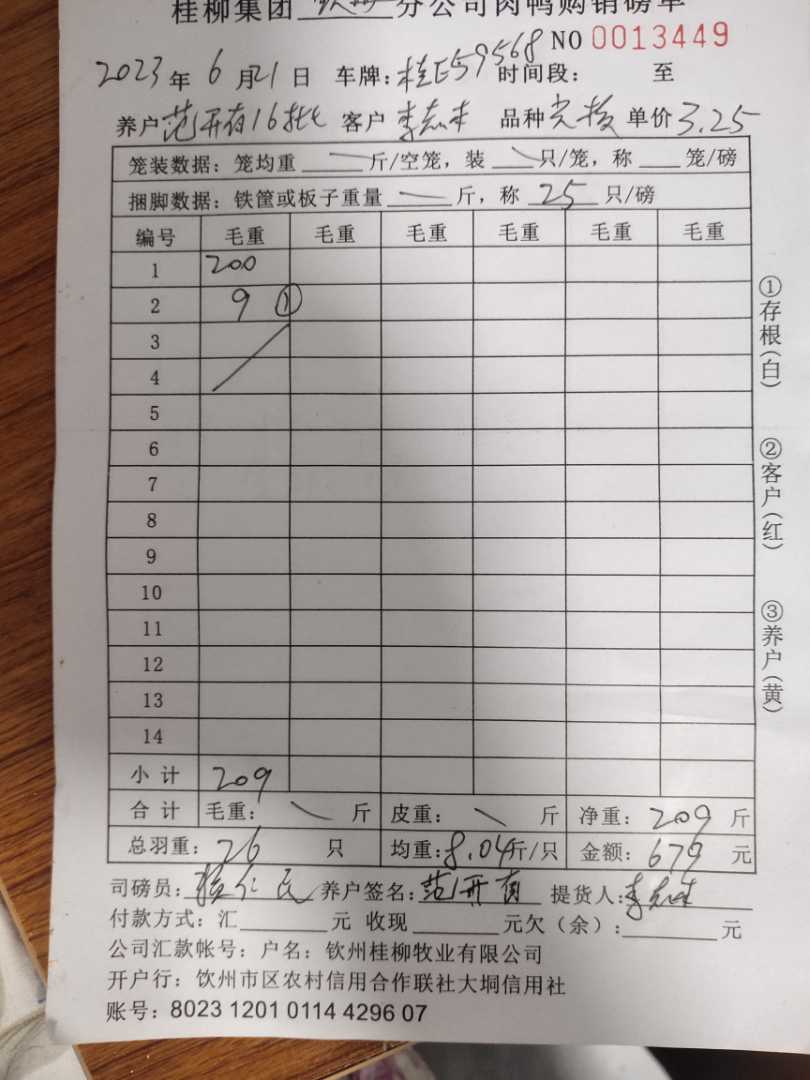 桂柳集团 钦州 分公司肉鸭购销磅单
NO 0013449
2023年6月21日 车牌:桂E59568 时间段: 至
养户 范开有16批 客户 李志 品种 单价 3.25
笼装数据:笼均重 斤/空笼,装 只/笼,称 笼/磅
捆脚数据:铁筐或板子重量 斤,称 25 只/磅
编号 毛重 毛重 毛重 毛重 毛重 毛重
1 200
2 9 ①
3
4
5
6
7
8
9
10
11
12
13
14
小计 209
合计 毛重: 斤 皮重: 斤 净重: 209 斤
总羽重: 26 只 均重: 8.04斤/只 金额: 679 元
司磅员: 仁民 养户签名: 范开有 提货人: 李志
付款方式:汇 元 收现 元欠(余): 元
公司汇款帐号:户名:钦州桂柳牧业有限公司
开户行:钦州市区农村信用合作联社大垌信用社
账号:8023 1201 0114 4296 07
①存根(白)
②客户(红)
③养户(黄)